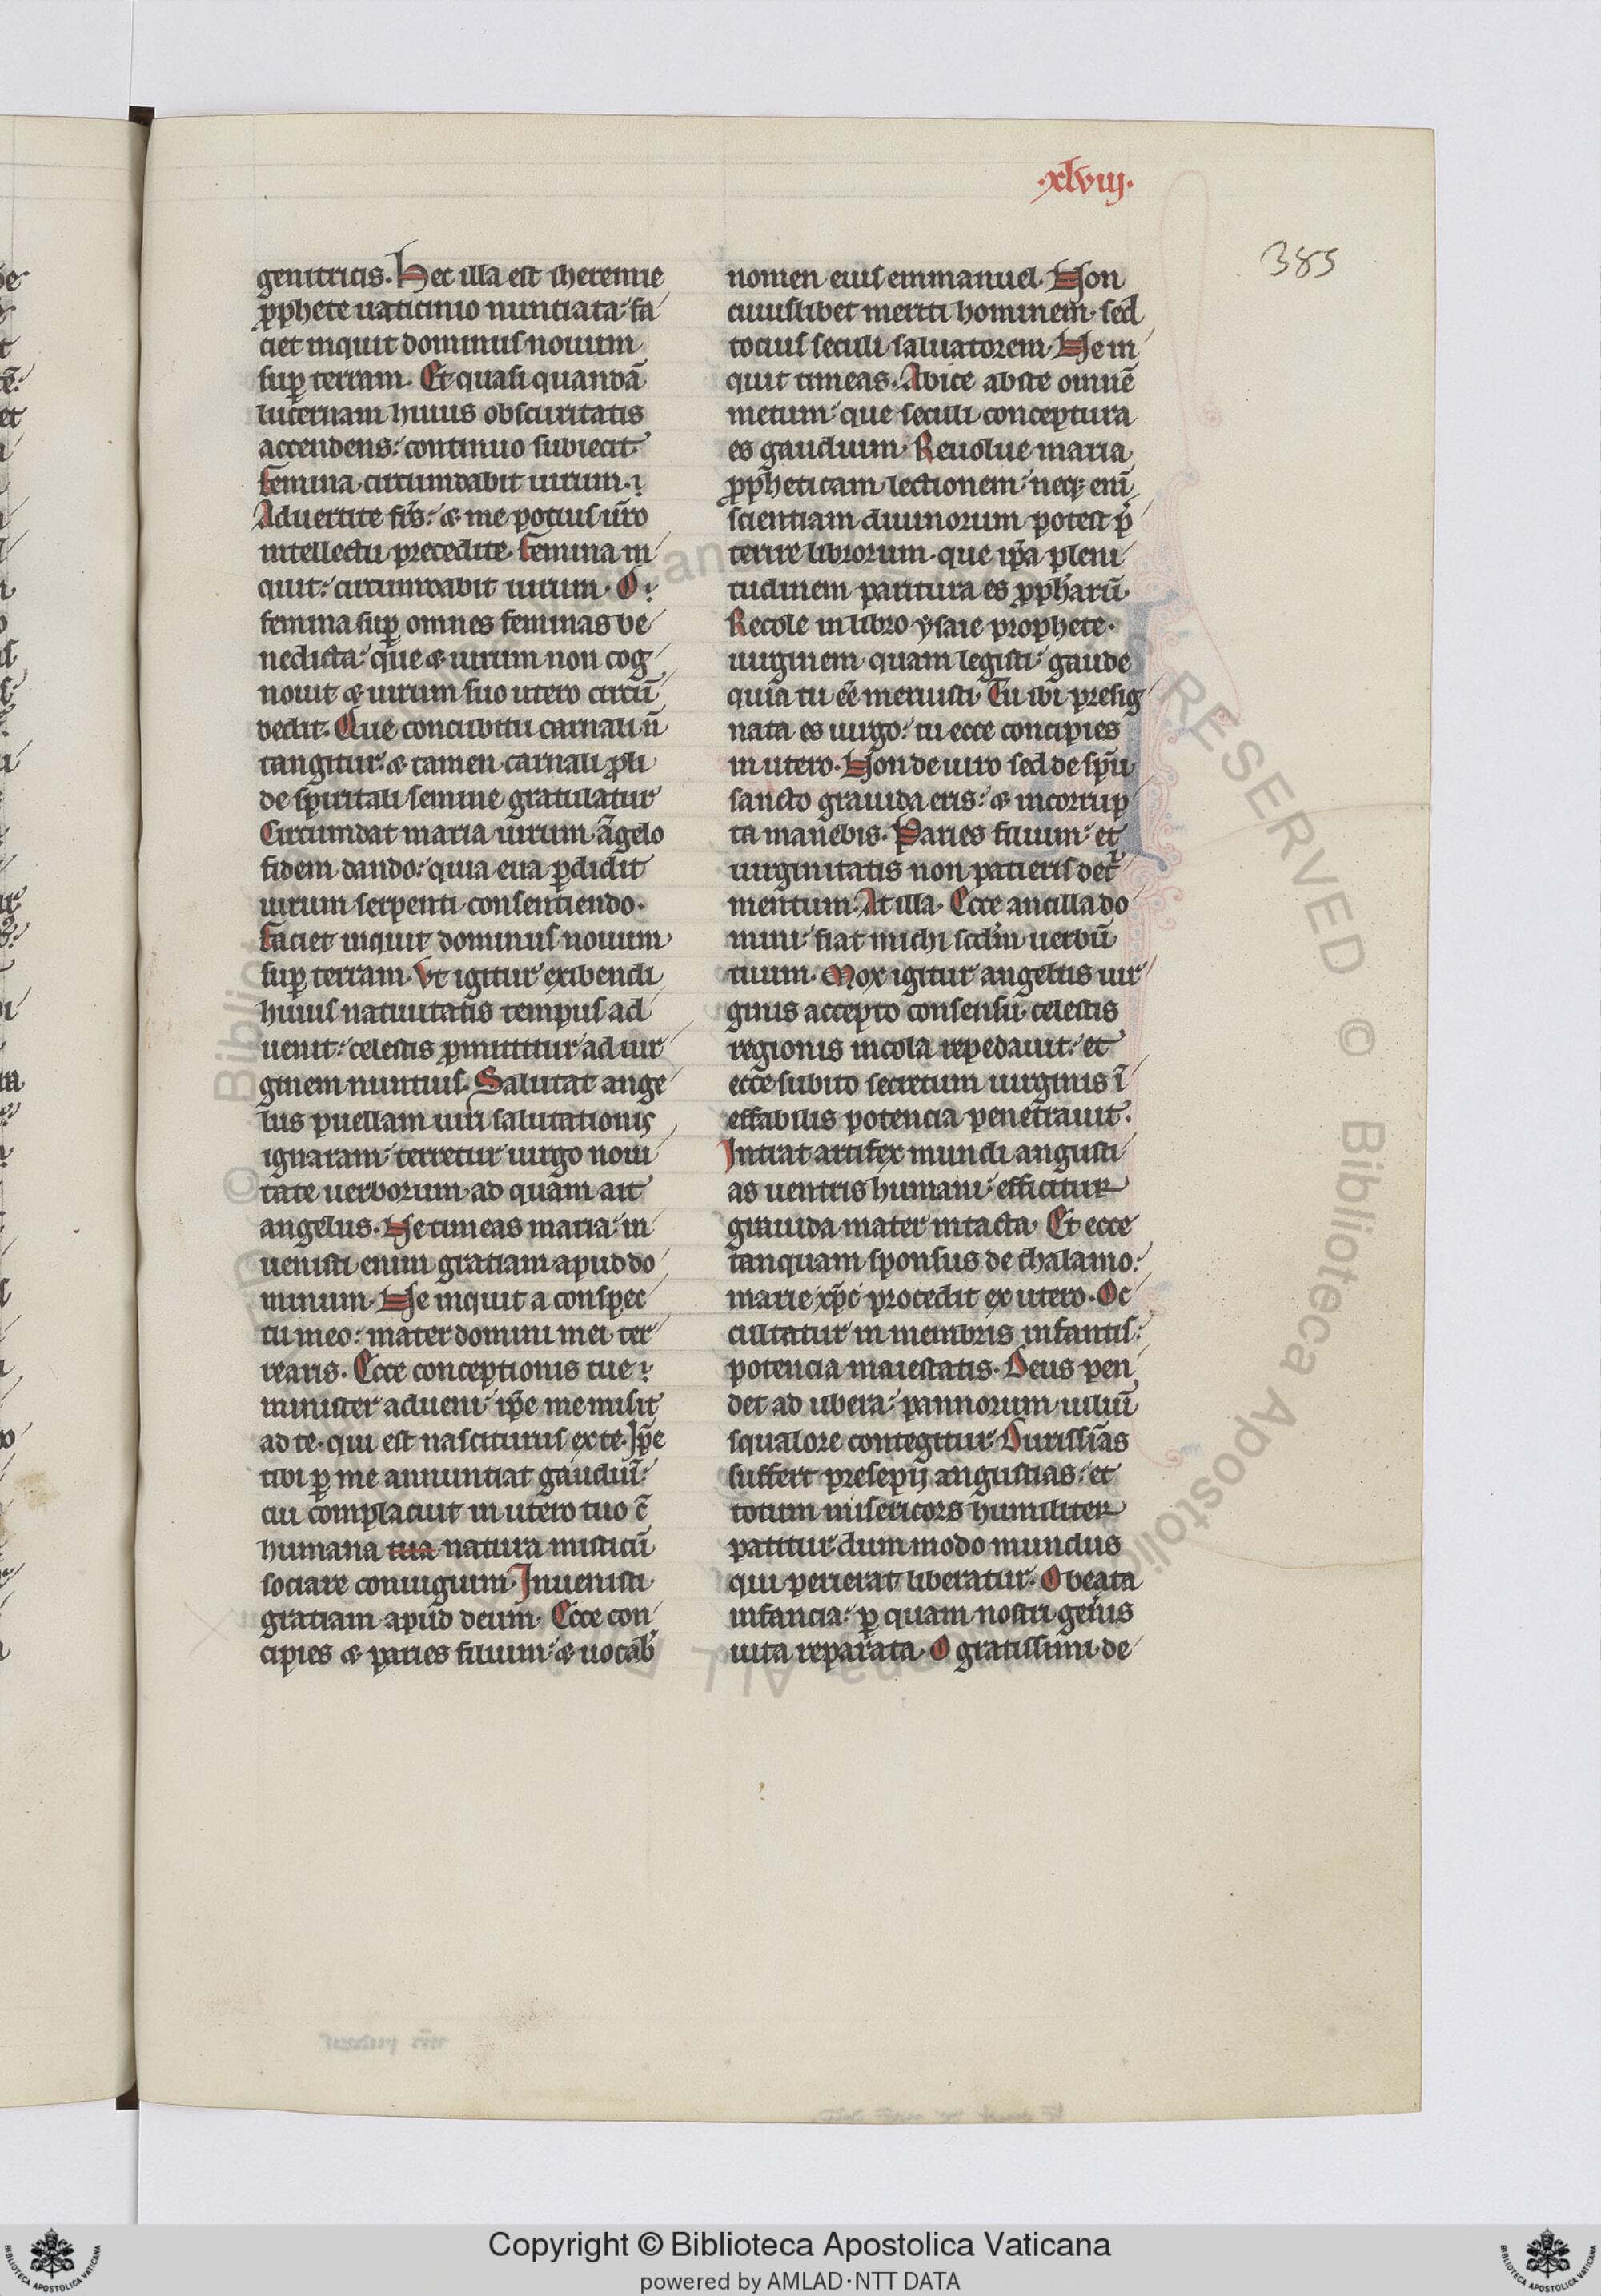 ·xlviij·
385
genitricis. Hec illa est iheremie
ꝓphete uaticinio nuntiata: fa
ciet inquit dominus nouum
suꝑ terram. Et quasi quandā
lucernam huius obscuritatis
accendens: continuo subiecit
femina circumdabit uirum.
Aduertite frs̄: ⁊ me potius uīro
intellectu precedite. femina in
quit: circumdabit uirum. O
femina suꝑ omnes feminas be
nedicta: que ⁊ uirum non cog
nouit ⁊ uirum suo utero circū
dedit. Que concubitu carnali n̄
tangitur: ⁊ tamen carnali ꝓli
de spiritali semine gratulatur
Circumdat maria uirum āgelo
fidem dando: quia eua ꝑdidit
uirum serpenti consentiendo.
faciet inquit dominus nouum
suꝑ terram. Vt igitur exibendi
huius natiuitatis tempus ad
uenit: celestis ꝓmittitur ad uir
ginem nuntius. Salutat ange
lus puellam uiri salutationis
ignaram: terretur uirgo noui
tate uerborum ad quam ait
angelus. Ne timeas maria: in
uenisti enim gratiam apud do
minum. Ne inquit a conspec
tu meo: mater domini mei ter
rearis. Ecce conceptionis tue
minister adueni: ip̄e me misit
ad te. qui est nasciturus ex te. Ip̄e
tibi ꝑ me annuntiat gaudiū:
cui complacuit in utero tuo c̄
humana tua natura misticū
sociare coniugium. Inuenisti
gratiam apud deum. Ecce con
cipies ⁊ paries filium: ⁊ uocab
nomen eius emmanuel. Non
cuiuslibet meriti hominem. sed
tocius seculi saluatorem. Ne in
quit timeas. Abice abs te omnē
metum: que seculi conceptura
es gaudium. Reuolue maria
ꝓpheticam lectionem: neqꝫ enī
scientiam diuinorum potest p̄
terire librorum. que ip̄a pleni
tudinem paritura es ꝓpharū.
Recole in libro ysaie prophete.
uirginem quam legisti: gaude
quia tu eē meruisti. Tu ibi presig
nata es uirgo: tu ecce concipies
in utero. Non de uiro sed de sp̄u
sancto grauida eris: ⁊ incorrup
ta manebis. Paries filium: et
uirginitatis non patieris detⁱ
mentum. At illa. Ecce ancilla do
mini: fiat michi scd̄m uerbū
tuum. Mox igitur angelus uir
ginis accepto consensu. celestis
regionis incola repedauit: et
ecce subito secretum uirginis ī
effabilis potencia penetrauit.
Intrat artifex mundi angusti
as uentris humani: efficitur
grauida mater intacta. Et ecce
tanquam sponsus de thalamo:
marie xp̄c procedit ex utero. Oc
cultatur in membris infantis:
potencia maiestatis. Deus pen
det ad ubera: pannorum uiliū
squalore contegitur. Durissīas
suffert presepij angustias: et
totum misericors humiliter
patitur dum modo mundus
qui perierat liberatur. O beata
infancia: ꝑ quam nostri gen̄is
uita reparata. O gratissimi de
Copyright © Biblioteca Apostolica Vaticana
powered by AMLAD·NTT DATA